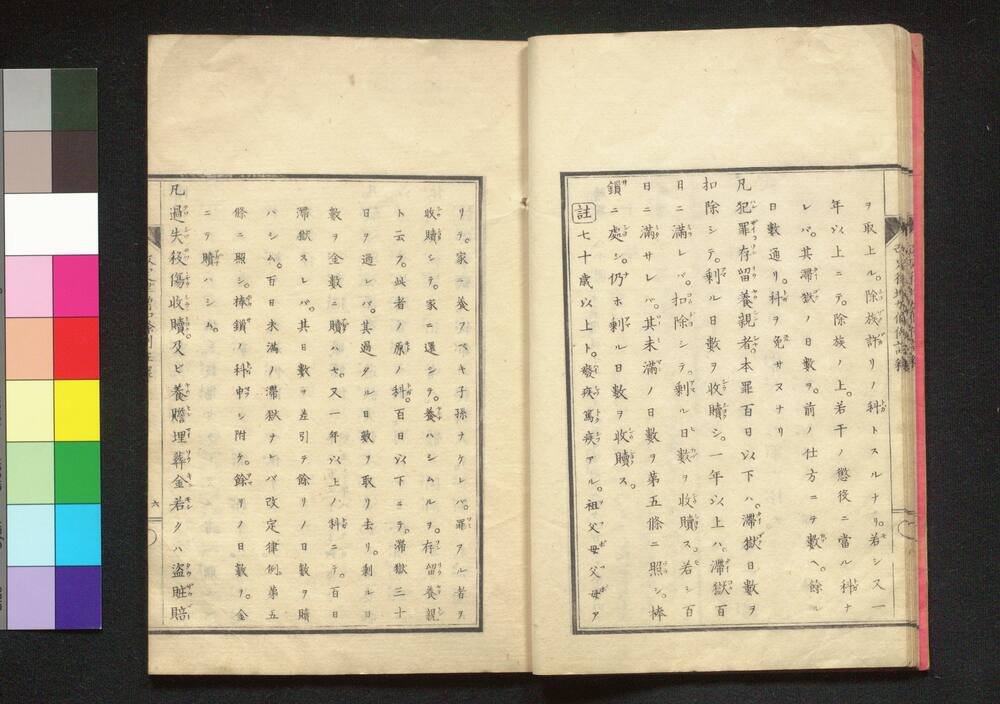 ヲ取上ル。除族許リノ科トスルナリ。若シス一
年以上ニテ。除族ノ上。若干ノ懲役ニ當ル科ナ
レバ。其滯獄ノ日數ヲ。前ノ仕方ニテ數ヘ。餘ル
日數通リ。科ヲ免サヌナリ
凡犯罪存留養親者。本罪百日以下ハ。滯獄日數ヲ
扣除シテ。剩ル日數ヲ收贖シ。一年以上ハ。滯獄百
日ニ滿レバ。扣除シテ。剩ル日數ヲ收贖ス。若シ百
日ニ滿サレバ。其未滿ノ日數ヲ第五條ニ照シ。棒
鎖ニ處シ。仍ホ剩ル日數ヲ收贖ス。
註 七十歳以上ト。癈疾篤疾アル。祖父母父母ア
リテ。家ニ養フベキ子孫ナケレバ。罪アル者ヲ
收贖シテ。家ニ還シテ。養ハシムルヲ。存留養親
ト云フ。此者ノ原ノ科。百日以下ニテ。滯獄三十
日ヲ過レバ。其過タル日數ヲ取リ去リ。剩ル日
數ヲ金數ニ贖ハセ。又一年以上ノ科ニテ。百日
滯獄スレバ。其日數ヲ差引テ餘リノ日數ヲ贖
ハシム。百日未滿ノ滯獄ナレバ改定律例。第五
條ニ照シ。棒鎖ノ科申シ附ケ。餘リノ日數ヲ。金
ニテ贖ハシム。
凡過失殺傷收贖。及ビ養贍埋葬金若クハ盜贓賠
六